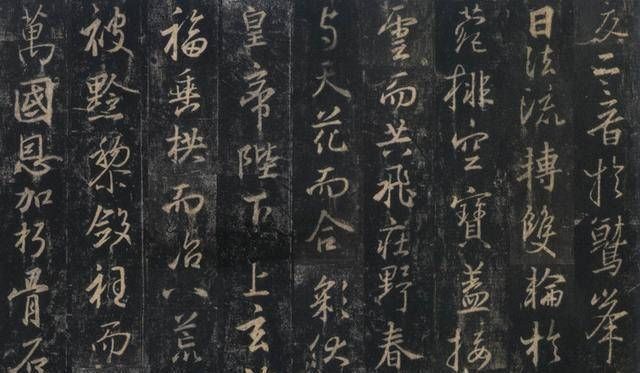 交二音於鷲峯
日法流轉雙輪於
菀排空寶蓋接
雲而共飛莊野春
与天花而合彩伏
皇帝陛下上玄
福垂拱而治八荒
被黔黎斂衽而
萬國恩加朽骨石